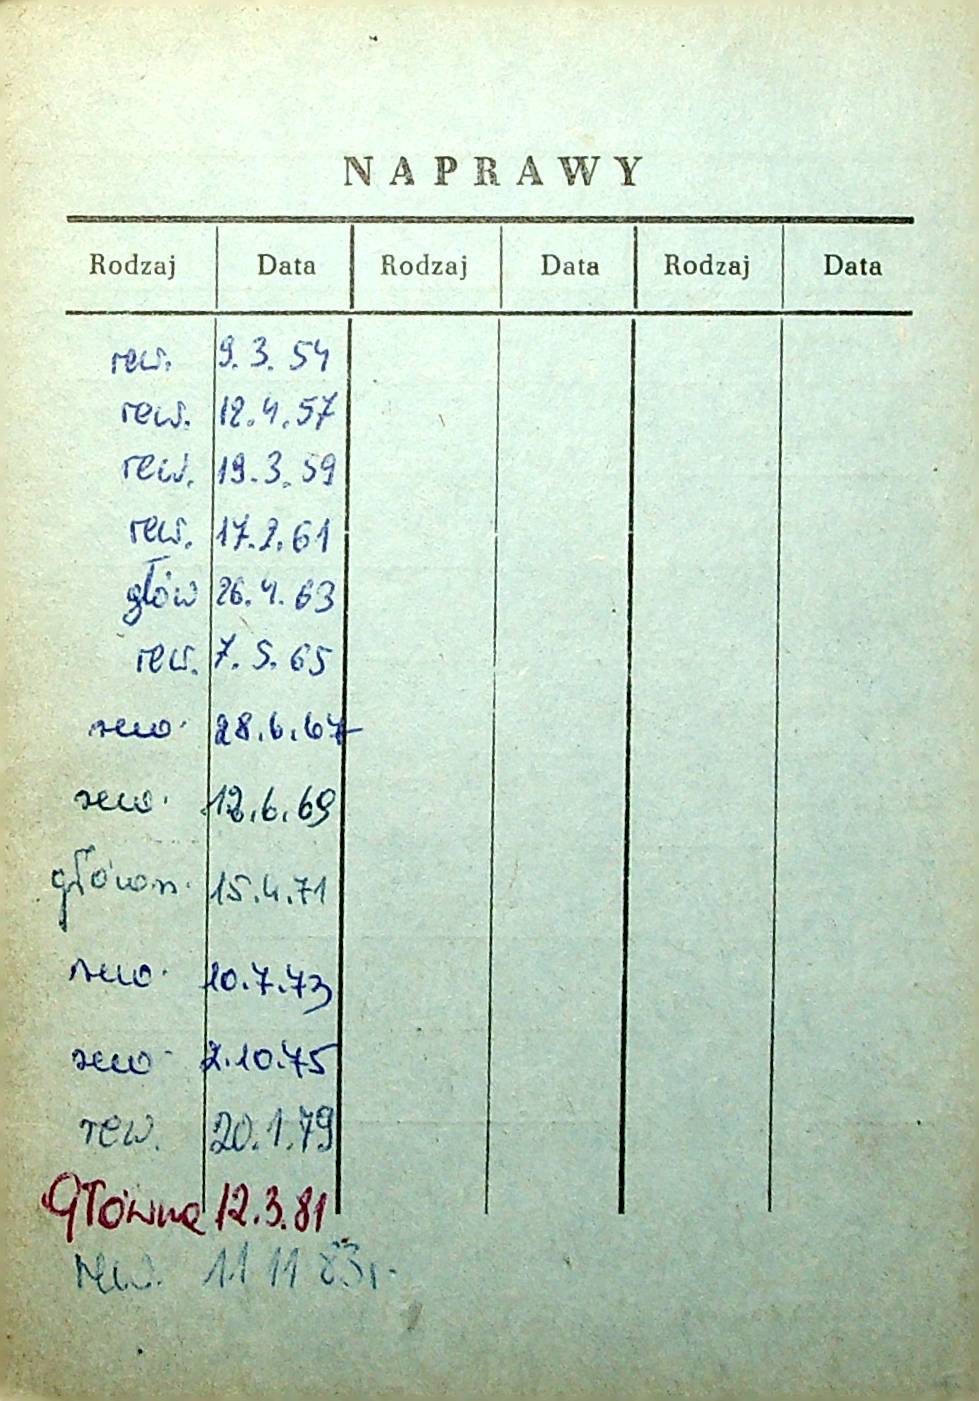 NAPRAWY
Rodzaj Data Rodzaj Data Rodzaj Data
rew. 9.3.54
rew. 12.4.57
rew. 19.3.59
rew. 17.2.61
głów 26.4.63
rew. 7.5.65
rew. 28.6.67
rew. 12.6.69
główn. 15.4.71
rew. 10.7.73
rew. 2.10.75
rew. 20.1.79
Główna 12.3.81
rew. 11 11 83r.